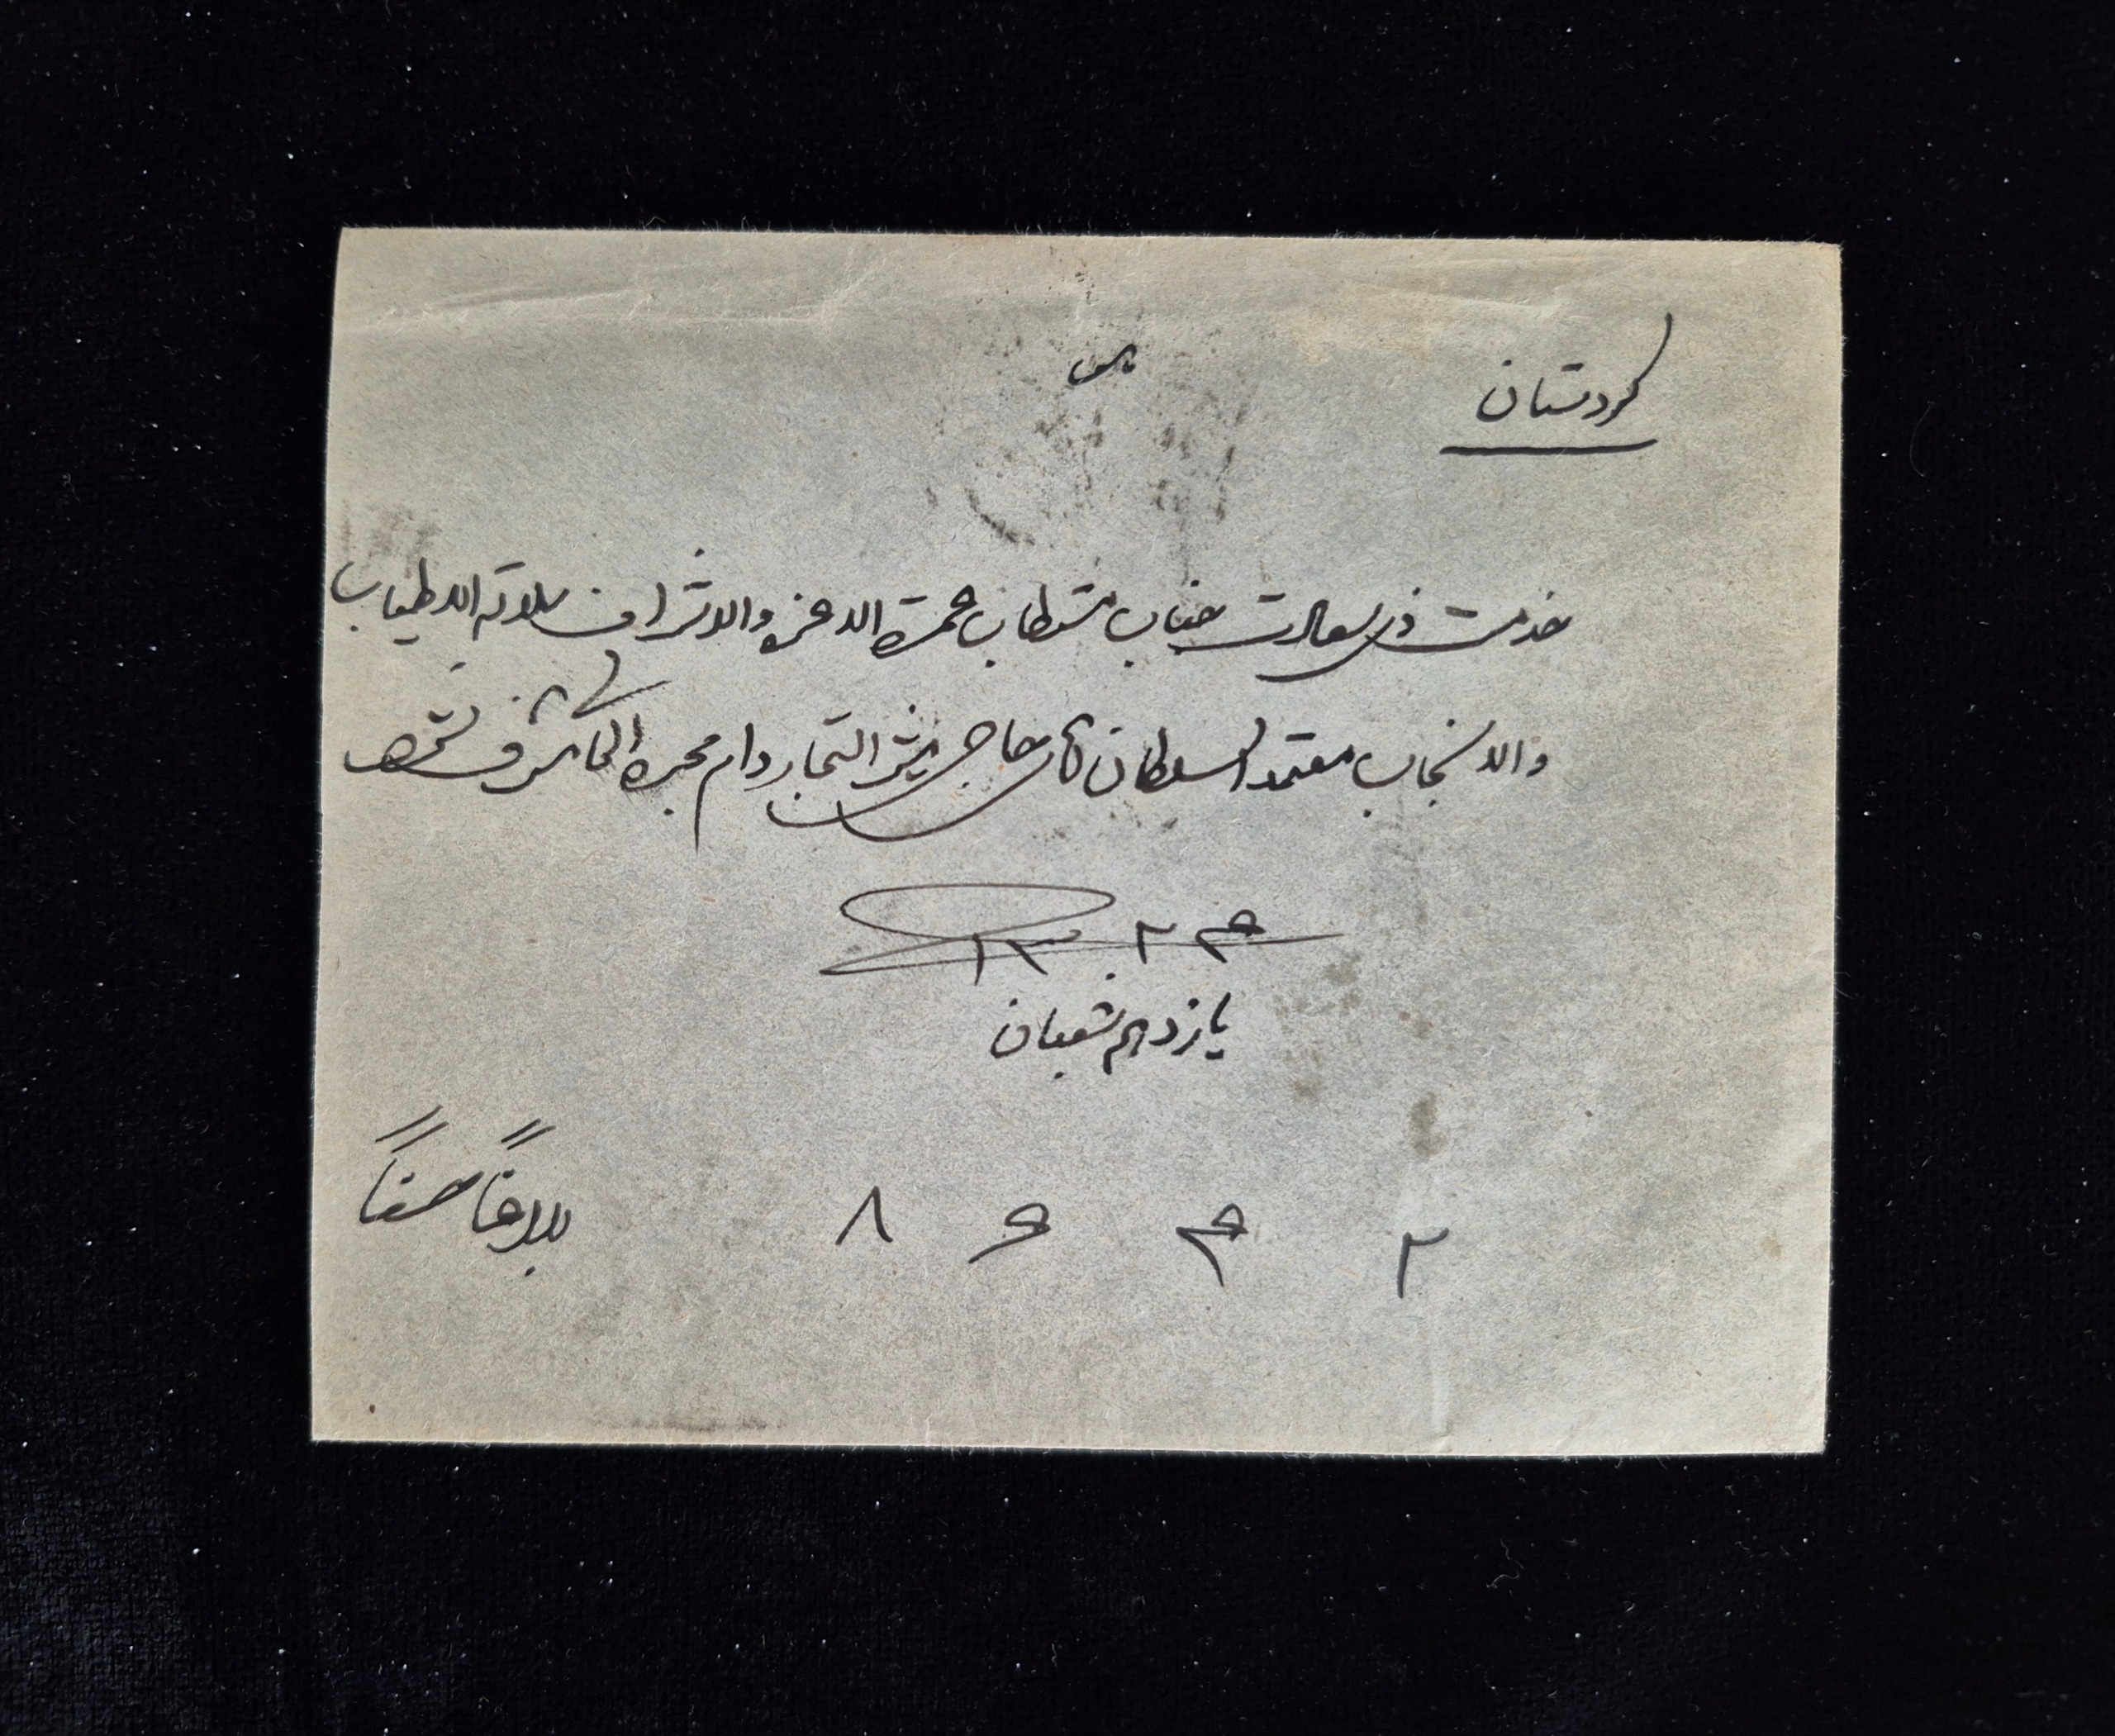 کردستان
خدمت ذی سعادت جناب مستطاب عمدة الاعزه والاشراف سلالة الاطیاب
والانجاب معتمد السلطان آقای حاجی التجار دام مجده العالی مشرف شود
یازدهم شعبان
۲ ۴ ۶ ۸